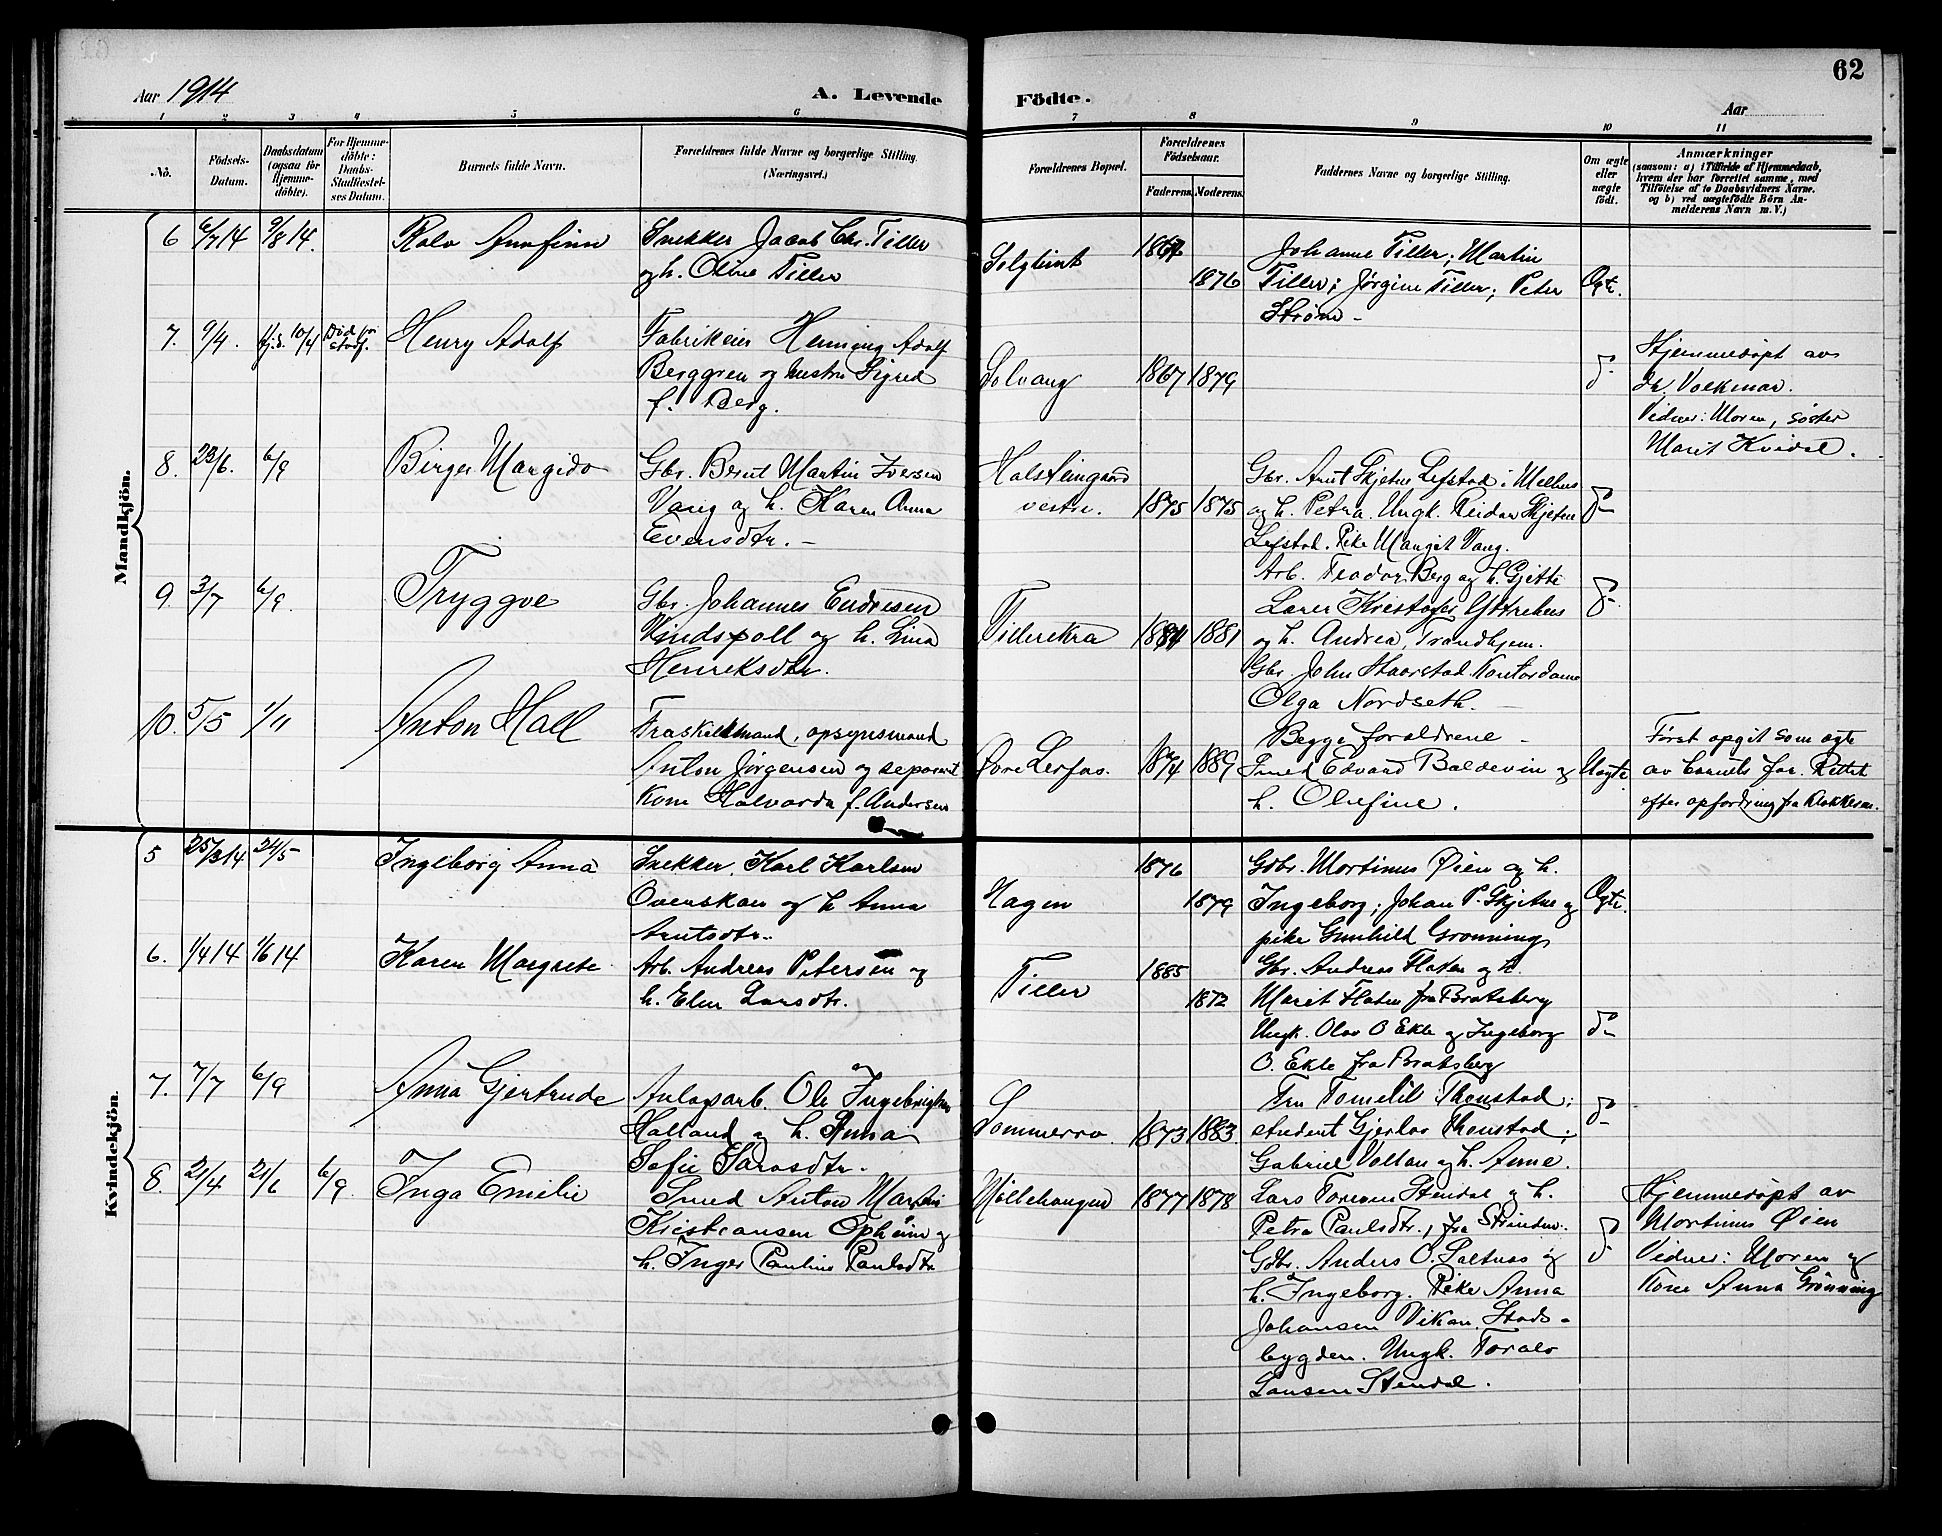 62
Aar 1914
A. Levende
Födte.
Aar
1 2 3 4 5 6 7 8 9 10 11
No.
Födsels-
Datum.
Daabsdatum
(ogsaa for
Hjemme-
döbte).
For Hjemme-
döbte:
Daabs-
Stadfæstel-
ses Datum.
Barnets fulde Navn.
Forældrenes fulde Navne og borgerlige Stilling.
(Næringsvei.)
Forældrenes Bopæl.
Forældrenes
Födselsaar.
Faderens.
Moderens.
Faddernes Navne og borgerlige Stilling.
Om ægte
eller
uægte
födt.
Anmærkninger
(saasom: a) i Tilfælde af Hjemmedaab,
hvem der har forrettet samme, med
Tilföielse af to Daabsvidners Navne.
og b) ved uægtefödte Börn An-
melderens Navn m. V.)
Mandkjön.
6 6/7 14 9/8 14.
Rolv Arnfinn
Snekker Jacob Chr. Tiller
og h. Oline Tiller
Solglimt
1876
Johanne Tiller; Martin
Tiller; Jørgine Tiller; Peter
Strøm -
Ægte.
7. 9/4. hj.d. 10/4
Henry Adolf
Fabrikeier Henning Adolf
Berggren og hustru Sigrid
f. Berg.
Solvang
1867 1879
do
Hjemmedøpt av
dr. Volkmar.
Vidner: Moren, søster
Marit Kvidal.
8. 23/6. 6/9
Birger Margido
Gbr. Bernt Martin Iversen
Vang og h. Karen Anna
Evensdtr. -
Halsteingaard
vestre.
1875 1875
Gbr. Arnt Skjetne Lefstad i Melhus
og h. Petra. Ungk. Reidar Skjetne
Lefstad. Pike Margit Vang.
Arb. Teodor Berg og h. Gjitte
do
9. 3/7 6/9.
Tryggve
Gbr. Johannes Endresen
Vindspoll og h. Lina
Henriksdtr.
Tillerekra
1881
Lærer Kristofer Ytterhus
og h. Andrea, Trondhjem.
Gbr. John Staorstad. Kontordame
Olga Nordseth. -
do
10. 5/5 1/11
Anton Hall
Fraskiltmand, opsynsmand
Anton Jørgensen og separert
Kone Halvarda f. Andersen
Øvre Lerfos.
1874 1889
Begge forældrene -
Smed Edvard Baldevin og
h. Olefine.
Uægte
Først opgit som ægte
av barnets far. Rettet
efter opfordring fra klokkeren.
Kvindekjön.
5 25/3 14 24/5
Ingeborg Anna
Snekker. Karl Karlsen
Ovenskan og h Anna
Arntsdtr.
Hagen
1876
1879
Gdbr. Mortinus Øien og h.
Ingeborg; Johan P. Skjetne og
pike Gunhild Grønning
Ægte.
6. 1/4 14 1/6 14
Karen Margrete
Arb. Andreas Petersen og
h. Elen Larsdtr.
Tiller
1885
1872
Gbr. Andreas Flaten og h.
Marit Flaten fra Bratsberg
Ungk. Olav O Ekle og Ingeborg
O. Ekle fra Bratsberg
do
7. 7/7 6/9
Anna Gjertrude
Anlagsarb. Ole Ingebrigtsen
Halland og h. Anna
Sofie Larsdtr.
Sommerro.
1873 1883
Fru Tomelil Thenstad;
student Gjerlov Thenstad;
Gabriel Vollan og h. Anne.
do
8. 21/4 21/6 6/9.
Inga Emelie
Smed Anton Martin
Kristiansen Opheim og
h. Inger Pauline Paulsdtr
Møllehaugen
1877 1878
Lars Toresen Stendal og h.
Petra Paulsdtr., fra Strinden.
Gdbr. Anders O. Saltnes og
h. Ingeborg. Pike Anna
Johansen Vikan, Stads-
bygden. Ungk. Toralv
Larsen Stendal.
do
Hjemmedøpt av
Mortinus Øien
Vidner: Moren og
Kone Anna Grønning